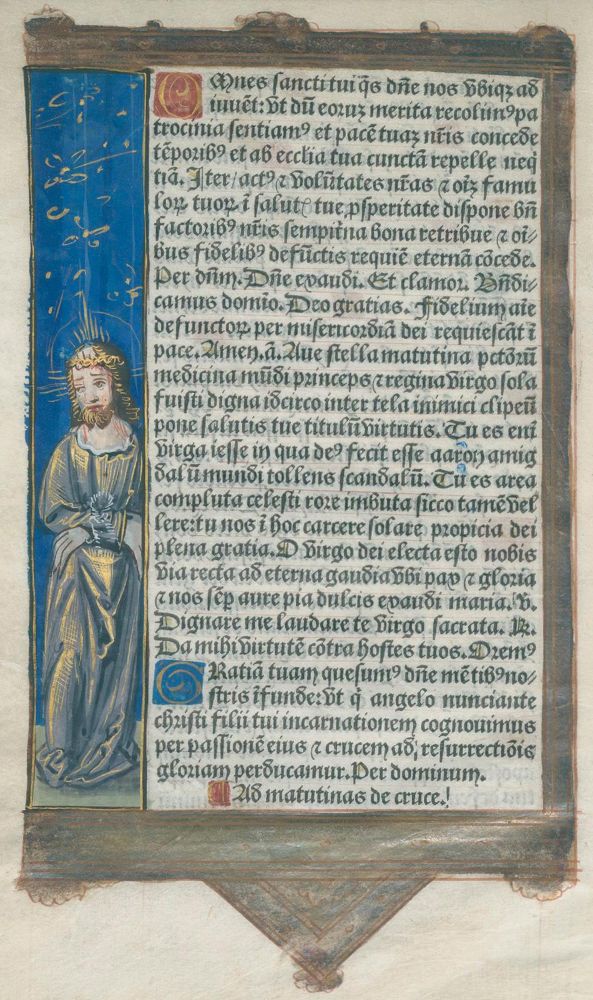 OMnes sancti tui q̄s dn̄e nos vbiqꝫ ad
iuuēt: vt dū eoruꝫ merita recolimꝰ pa
trocinia sentiamꝰ et pacē tuaꝫ nr̄is concede
tēporibꝰ et ab ecclīa tua cunctā repelle neq̄
tiā. Iter/ actꝰ ⁊ volūtates nr̄as ⁊ oīꝫ famu
loꝝ tuoꝝ ī salutꝭ tue ꝓsperitate dispone bn̄
factoribꝰ nr̄is sempit̄na bona retribue ⁊ oī-
bus fidelibꝰ defūctis requiē eternā cōcede.
Per dn̄m. Dn̄e exaudi. Et clamor. Bn̄di-
camus domīo. Deo gratias. Fidelium aīe
defunctoꝝ per misericordiā dei requiescāt ī
pace. Amen. ā. Aue stella matutina pctōrū
medicina mūdi princeps ⁊ regina virgo sola
fuisti digna idcirco inter tela inimici clipeū
pone salutis tue titulū virtutis. Tu es enī
virga iesse in qua deꝰ fecit esse aaron amig
dalū mundi tollens scandalū. Tu es area
compluta celesti rore imbuta sicco tamē vel
lere: tu nos ī hoc carcere solare propicia dei
plena gratia. O virgo dei electa esto nobis
via recta ad eterna gaudia vbi pax ⁊ gloria
⁊ nos sēꝑ aure pia dulcis exaudi maria. v.
Dignare me laudare te virgo sacrata. ꝶ.
Da mihi virtutē cōtra hostes tuos. Oremꝰ
GRatiā tuam quesumꝰ dn̄e mētibꝰ no-
stris īfunde: vt q̄ angelo nunciante
christi filii tui incarnationem cognouimus
per passionē eius ⁊ crucem ad resurrectiōis
gloriam perducamur. Per dominum.
¶ Ad matutinas de cruce.